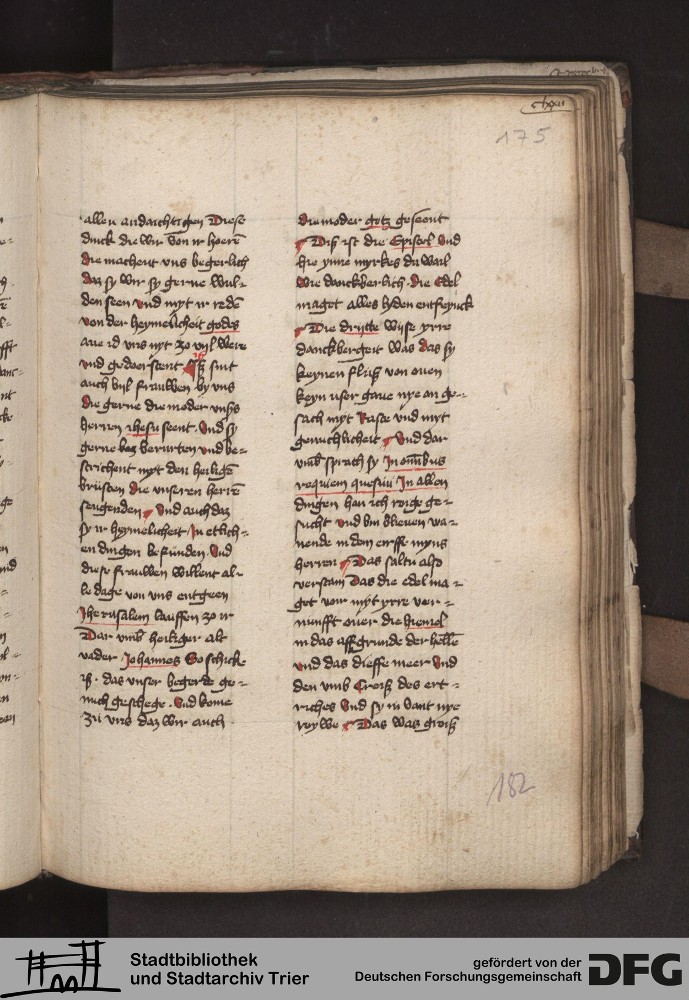 clxxii
175
allen andaichtigen Diese
dinck die wir von ir hoerē
die machent vns begerlich
daz sy wir sy gerne wul-
den seen vnd myt ir redē
von der heymelicheit godes
aue id vns nyt zo vyl were
vnd gedoerstent Iß sint
auch vyl frauwen by vns
die gerne die moder vnßs
herren ihesu seent. Vnd sy
gerne berurten vnd be-
strichent myt den heiligē
brüsten die vnseren herrē
seugenden Vnd auch daz
sy ir heymelicheit In etlich-
en dingen befunden. Vnd
diese frauwen willent al-
le dage von vns entgeen
Jherusalem lauffen zo ir
Dar vmb heiliger alt
vader Johannes So schicke
iß. das vnser begerde ge-
nuch geschege. Vnd kome
zu vns daz wir auch
die moder gotz geseent
Diß ist die Epistel Vnd
hie ynne myrkes du wail
wie danckberlich die edel
maget alles lyden entfeynck
Die drijtte wyse yrre
danckbergeit was das sy
keynen fluß von ouen
keyn user gaue nye an ge-
sach myt Raste vnd myt
genuchlicheit Vnd dar
vmb sprach sy In omībus
requiem quesiui In allen
dingen han ich roige ge-
sucht vnd bin blieuen wa-
nende in dem erffe myns
herren Das saltu also
verstain Das die edel ma-
get vour myt yrre ver-
nunfft ouer die hiemel
in das affgrunde der hellē
vnd das dieffe meer Vnd
den vmb Creiß des ert-
riches Vnd sy in vant nye
roywe Das was groiß
182
Stadtbibliothek
und Stadtarchiv Trier
gefördert von der
Deutschen Forschungsgemeinschaft
DFG